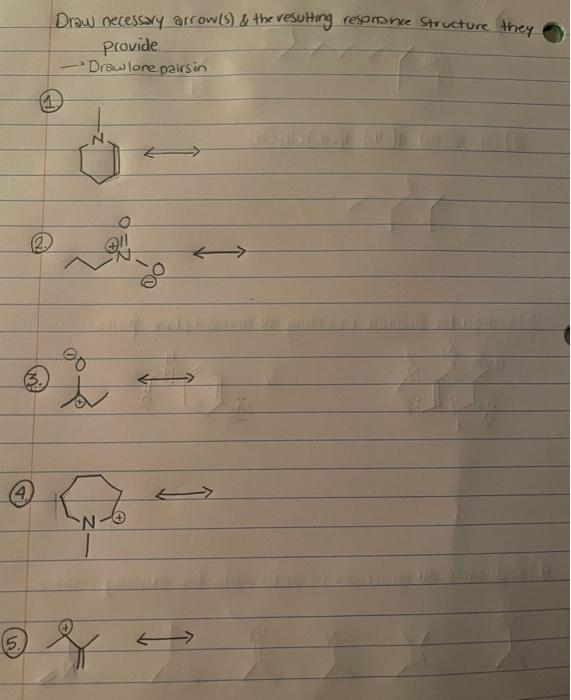 Draw necessary arrow(s) & the resulting resonance structure they
provide
→ Draw lone pairs in
1.
N
2.
O
⊕
N
O
⊖
3.
⊖
O
⊕
4.
N ⊕
5.
⊕